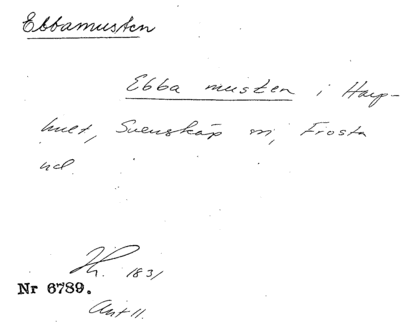 Ebbamusten
Ebba musten i Harp-
hult, Svensköp sn, Frosta
hd.
1831
Nr 6789.